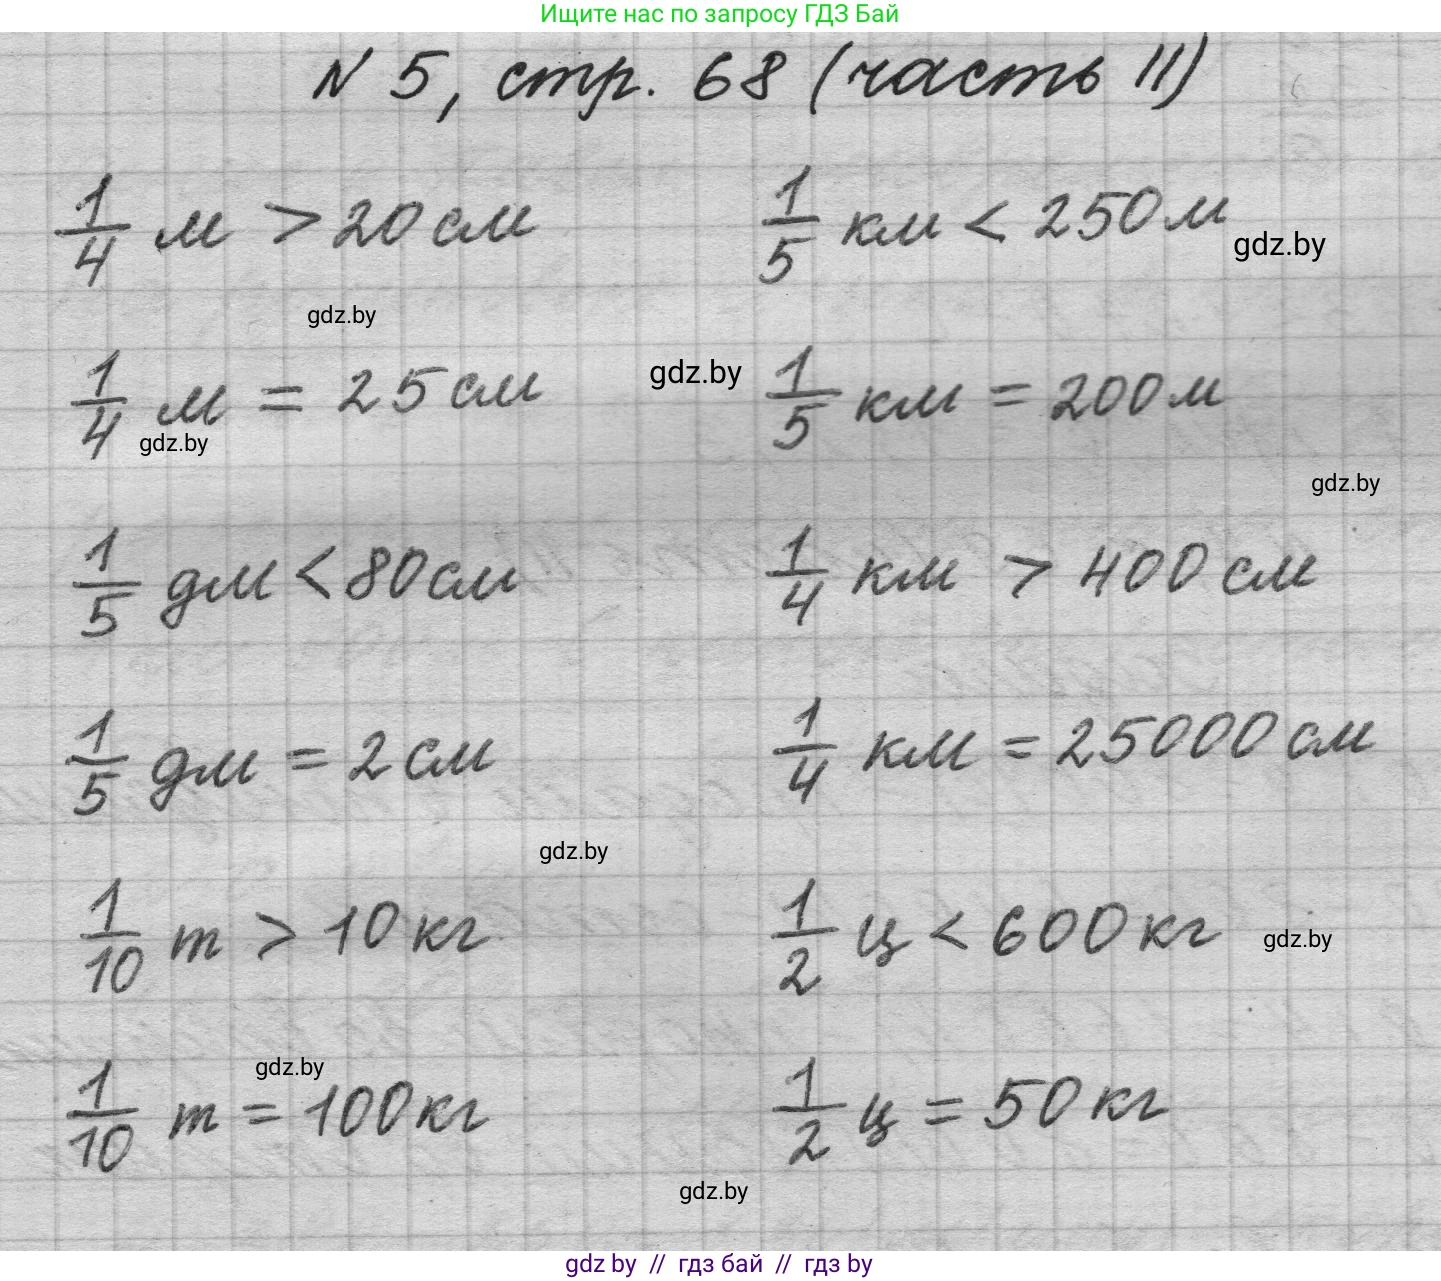 Ищите нас по запросу ГДЗ Бай
N 5, стр. 68 (часть II)
1/4 м > 20 см 1/5 км < 250 м
gdz.by
gdz.by
1/4 м = 25 см gdz.by 1/5 км = 200 м
gdz.by
gdz.by
1/5 дм < 80 см 1/4 км > 400 см
1/5 дм = 2 см 1/4 км = 25000 см
gdz.by
1/10 т > 10 кг 1/2 ц < 600 кг gdz.by
gdz.by
1/10 т = 100 кг 1/2 ц = 50 кг
gdz.by
gdz by // гдз бай // гдз by